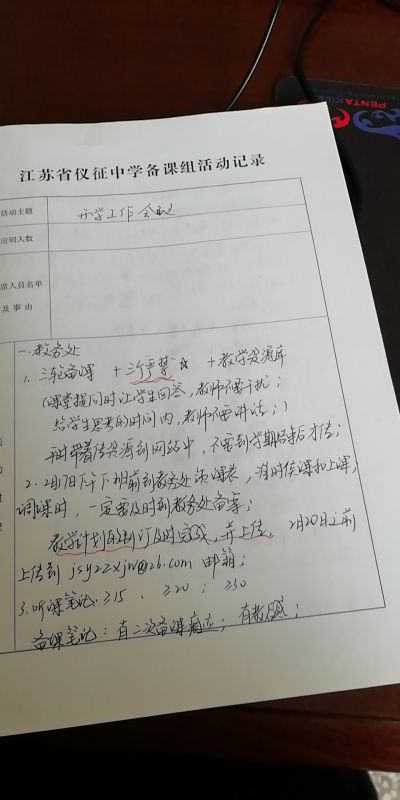 PENTAKILL
江苏省仪征中学备课组活动记录
活动主题 开学工作会议
应到人数
席人员名单
及事由
一.教务处
1. 三轮备课 + 三个严禁☆ + 教学资源库
(课堂提问时让学生回答，教师不要干扰；
给学生思考的时间内，教师不要讲话；)
平时带着传资源到网站中，不要到学期结束后才传；
2. 2月17日下午下班前到教务处领课表，准时候课和上课；
调课时，一定要及时到教务处备案；
教学计划的制订及时完成，并上传， 2月20日之前
上传到 jsyzzxjw@126.com 邮箱；
3. 听课笔记：≥15 、 ≥20 ； ≥30
备课笔记：有二次备课痕迹；有教后感；